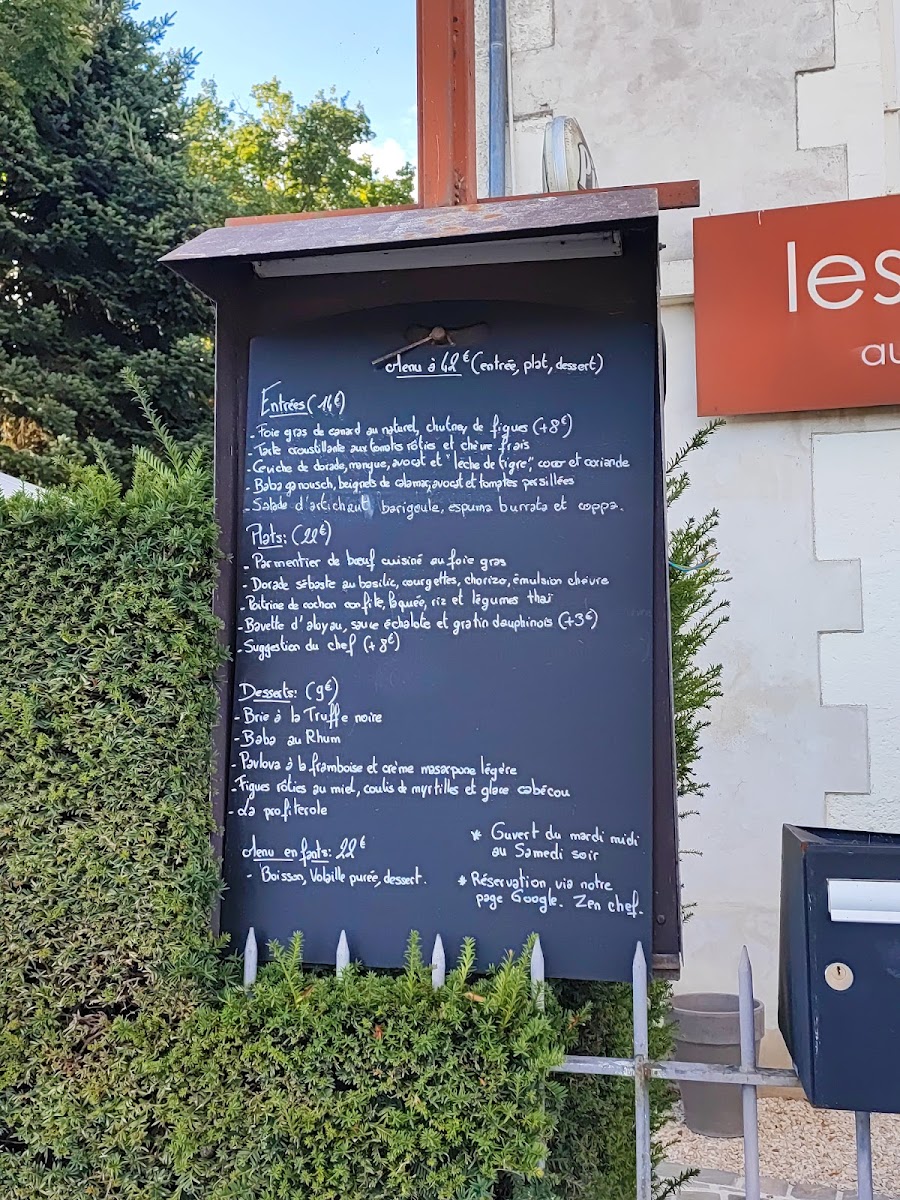 Menu à 42€ (entrée, plat, dessert)
Entrées (14€)
- Foie gras de canard au naturel, chutney de figues (+8€)
- Tarte croustillante aux tomates rôties et chèvre frais
- Ceviche de dorade, mangue, avocat et "lèche de tigre", coco et coriande
- Baba ganousch, beignets de calamar, avocat et tomates persillées
- Salade d'artichaut barigoule, espuma burrata et coppa.
Plats: (22€)
- Parmentier de bœuf cuisiné au foie gras
- Dorade sébaste au basilic, courgettes, chorizo, émulsion chèvre
- Poitrine de cochon confite, laquée, riz et légumes thaï
- Bavette d'aloyau, sauce échalote et gratin dauphinois (+3€)
- Suggestion du chef (+8€)
Desserts: (9€)
- Brie à la Truffe noire
- Baba au Rhum
- Pavlova à la framboise et crème mascarpone légère
- Figues rôties au miel, coulis de myrtilles et glace cabécou
- La profiterole
Menu enfants: 22€
- Boisson, Volaille purée, dessert.
* Ouvert du mardi midi
au Samedi soir
* Réservation via notre
page Google. Zen chef.
les
au